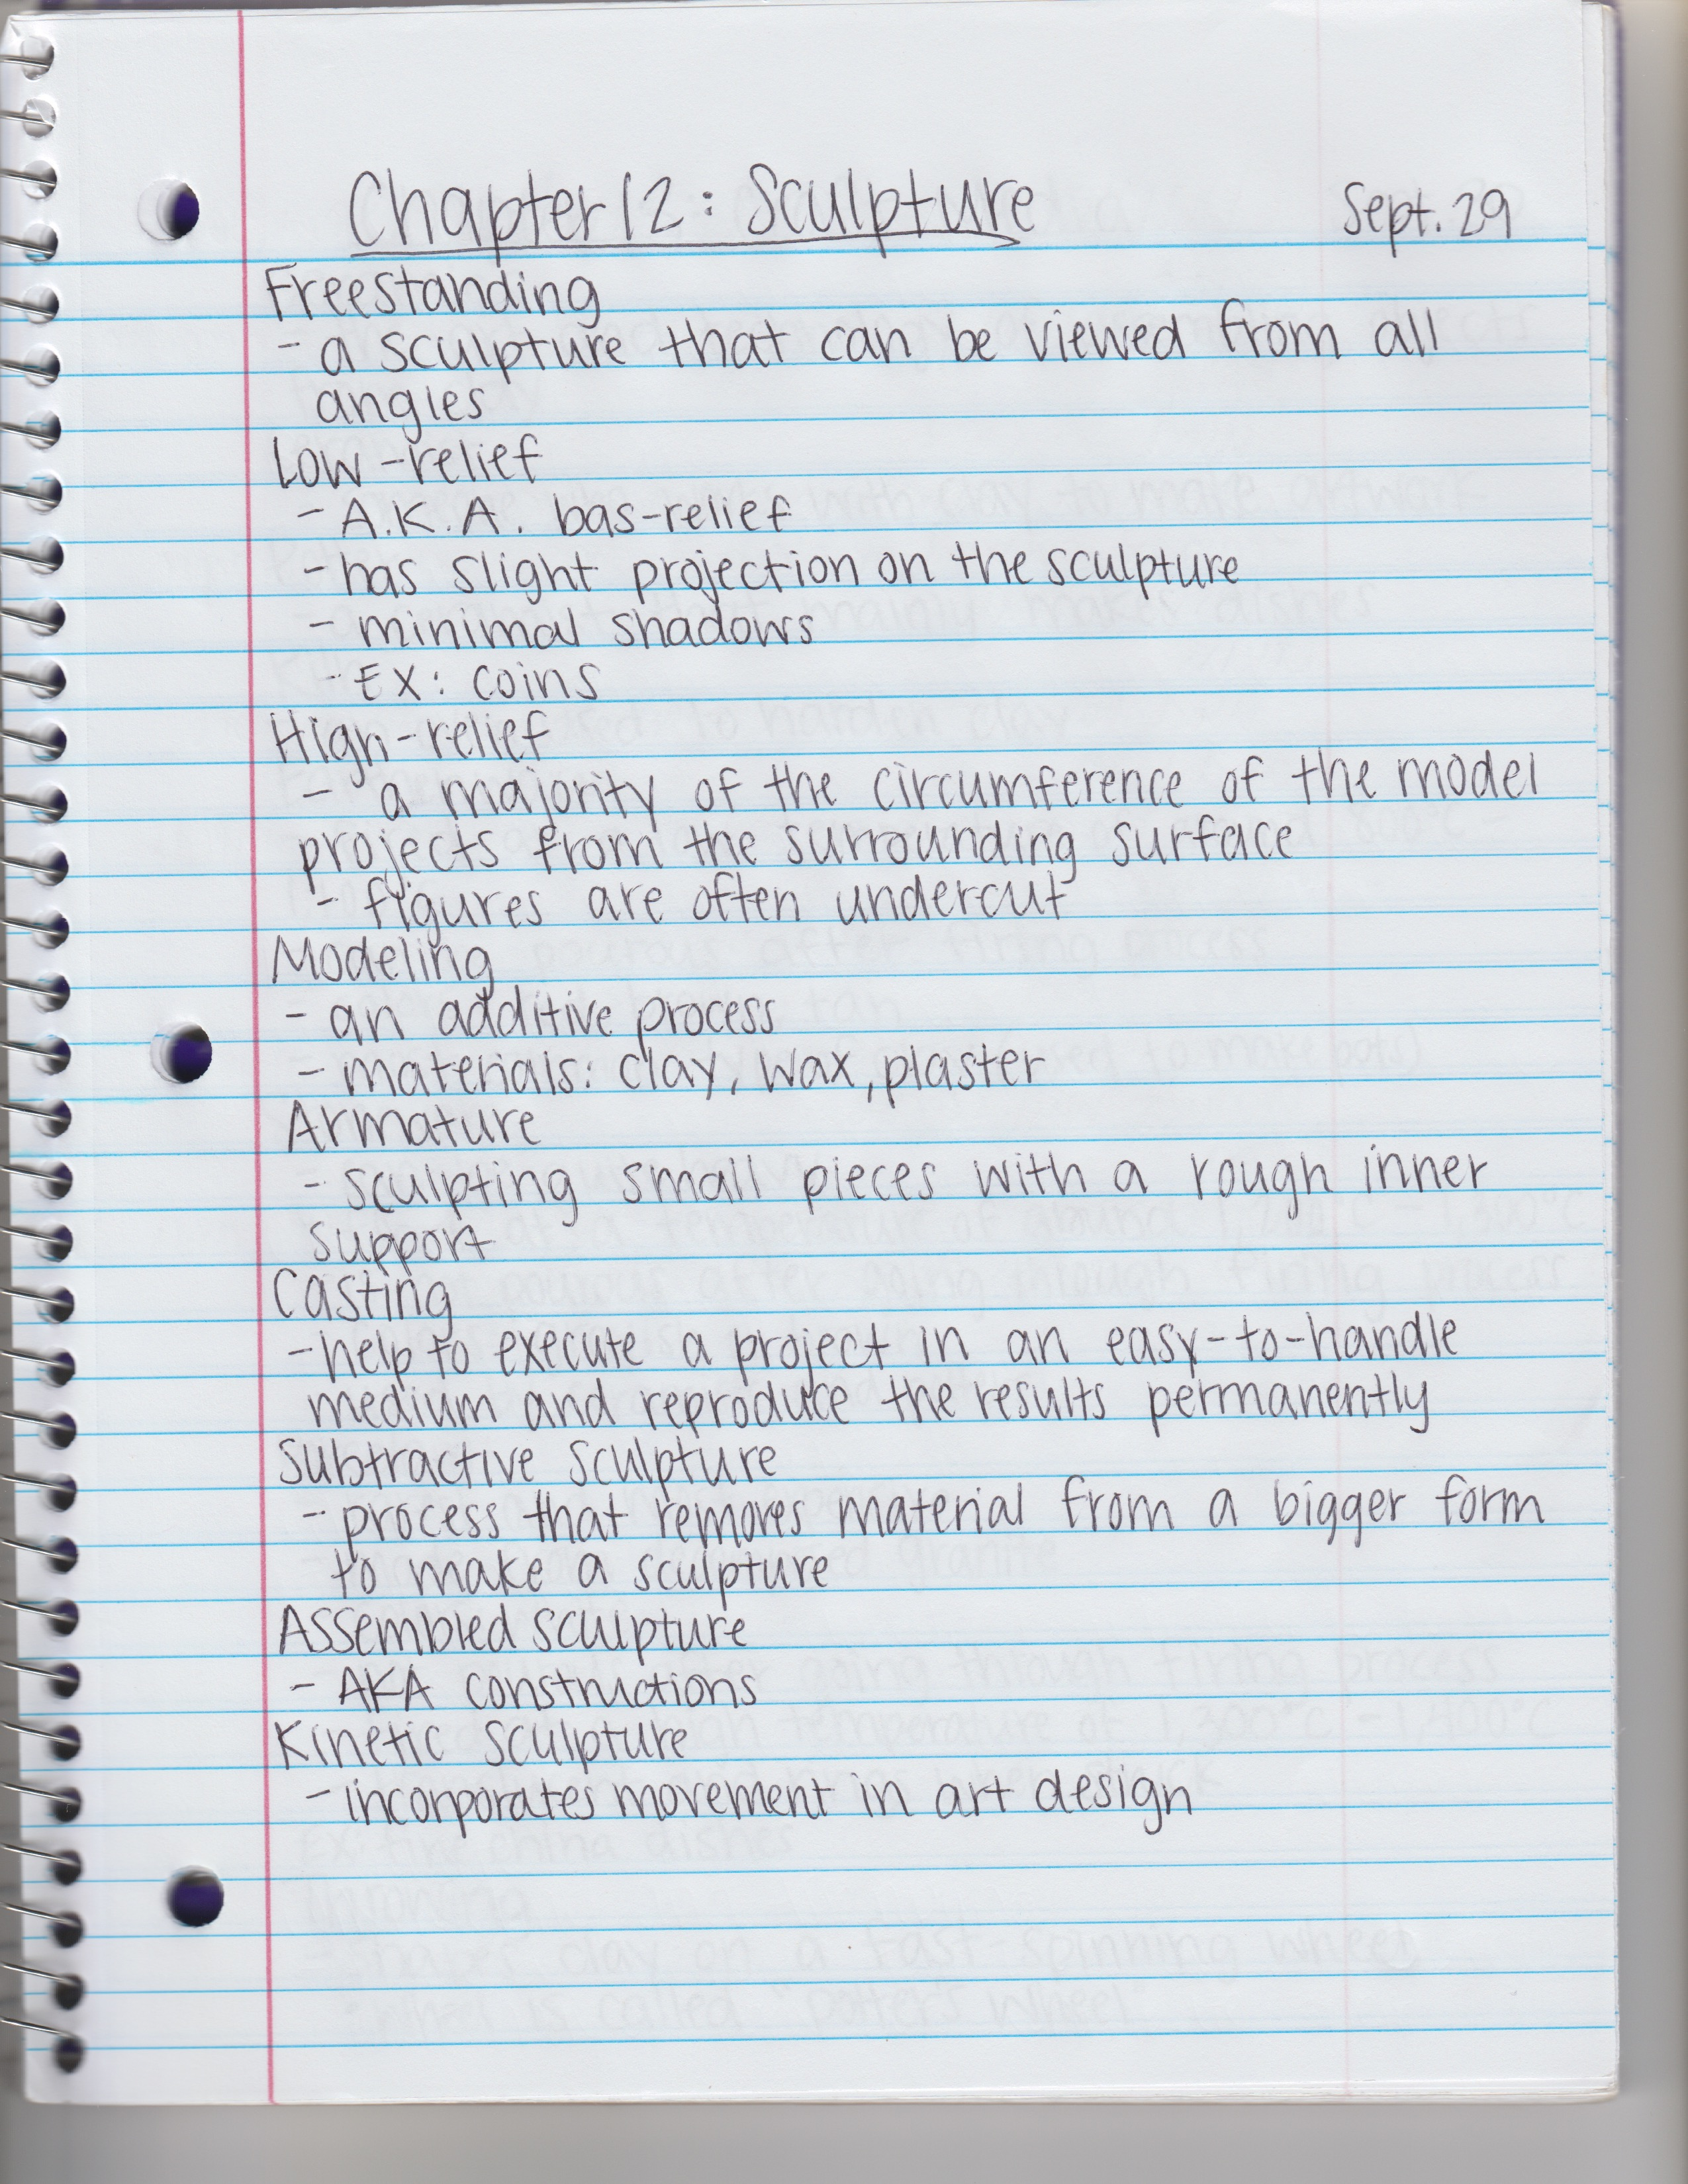 Chapter 12: Sculpture Sept. 29
Freestanding
- a sculpture that can be viewed from all
angles
Low-relief
- A.K.A. bas-relief
- has slight projection on the sculpture
- minimal shadows
- EX: coins
High-relief
- a majority of the circumference of the model
projects from the surrounding surface
- figures are often undercut
Modeling
- an additive process
- materials: clay, wax, plaster
Armature
- sculpting small pieces with a rough inner
support
Casting
- help to execute a project in an easy-to-handle
medium and reproduce the results permanently
Subtractive sculpture
- process that removes material from a bigger form
to make a sculpture
Assembled sculpture
- AKA constructions
Kinetic sculpture
- incorporates movement in art design